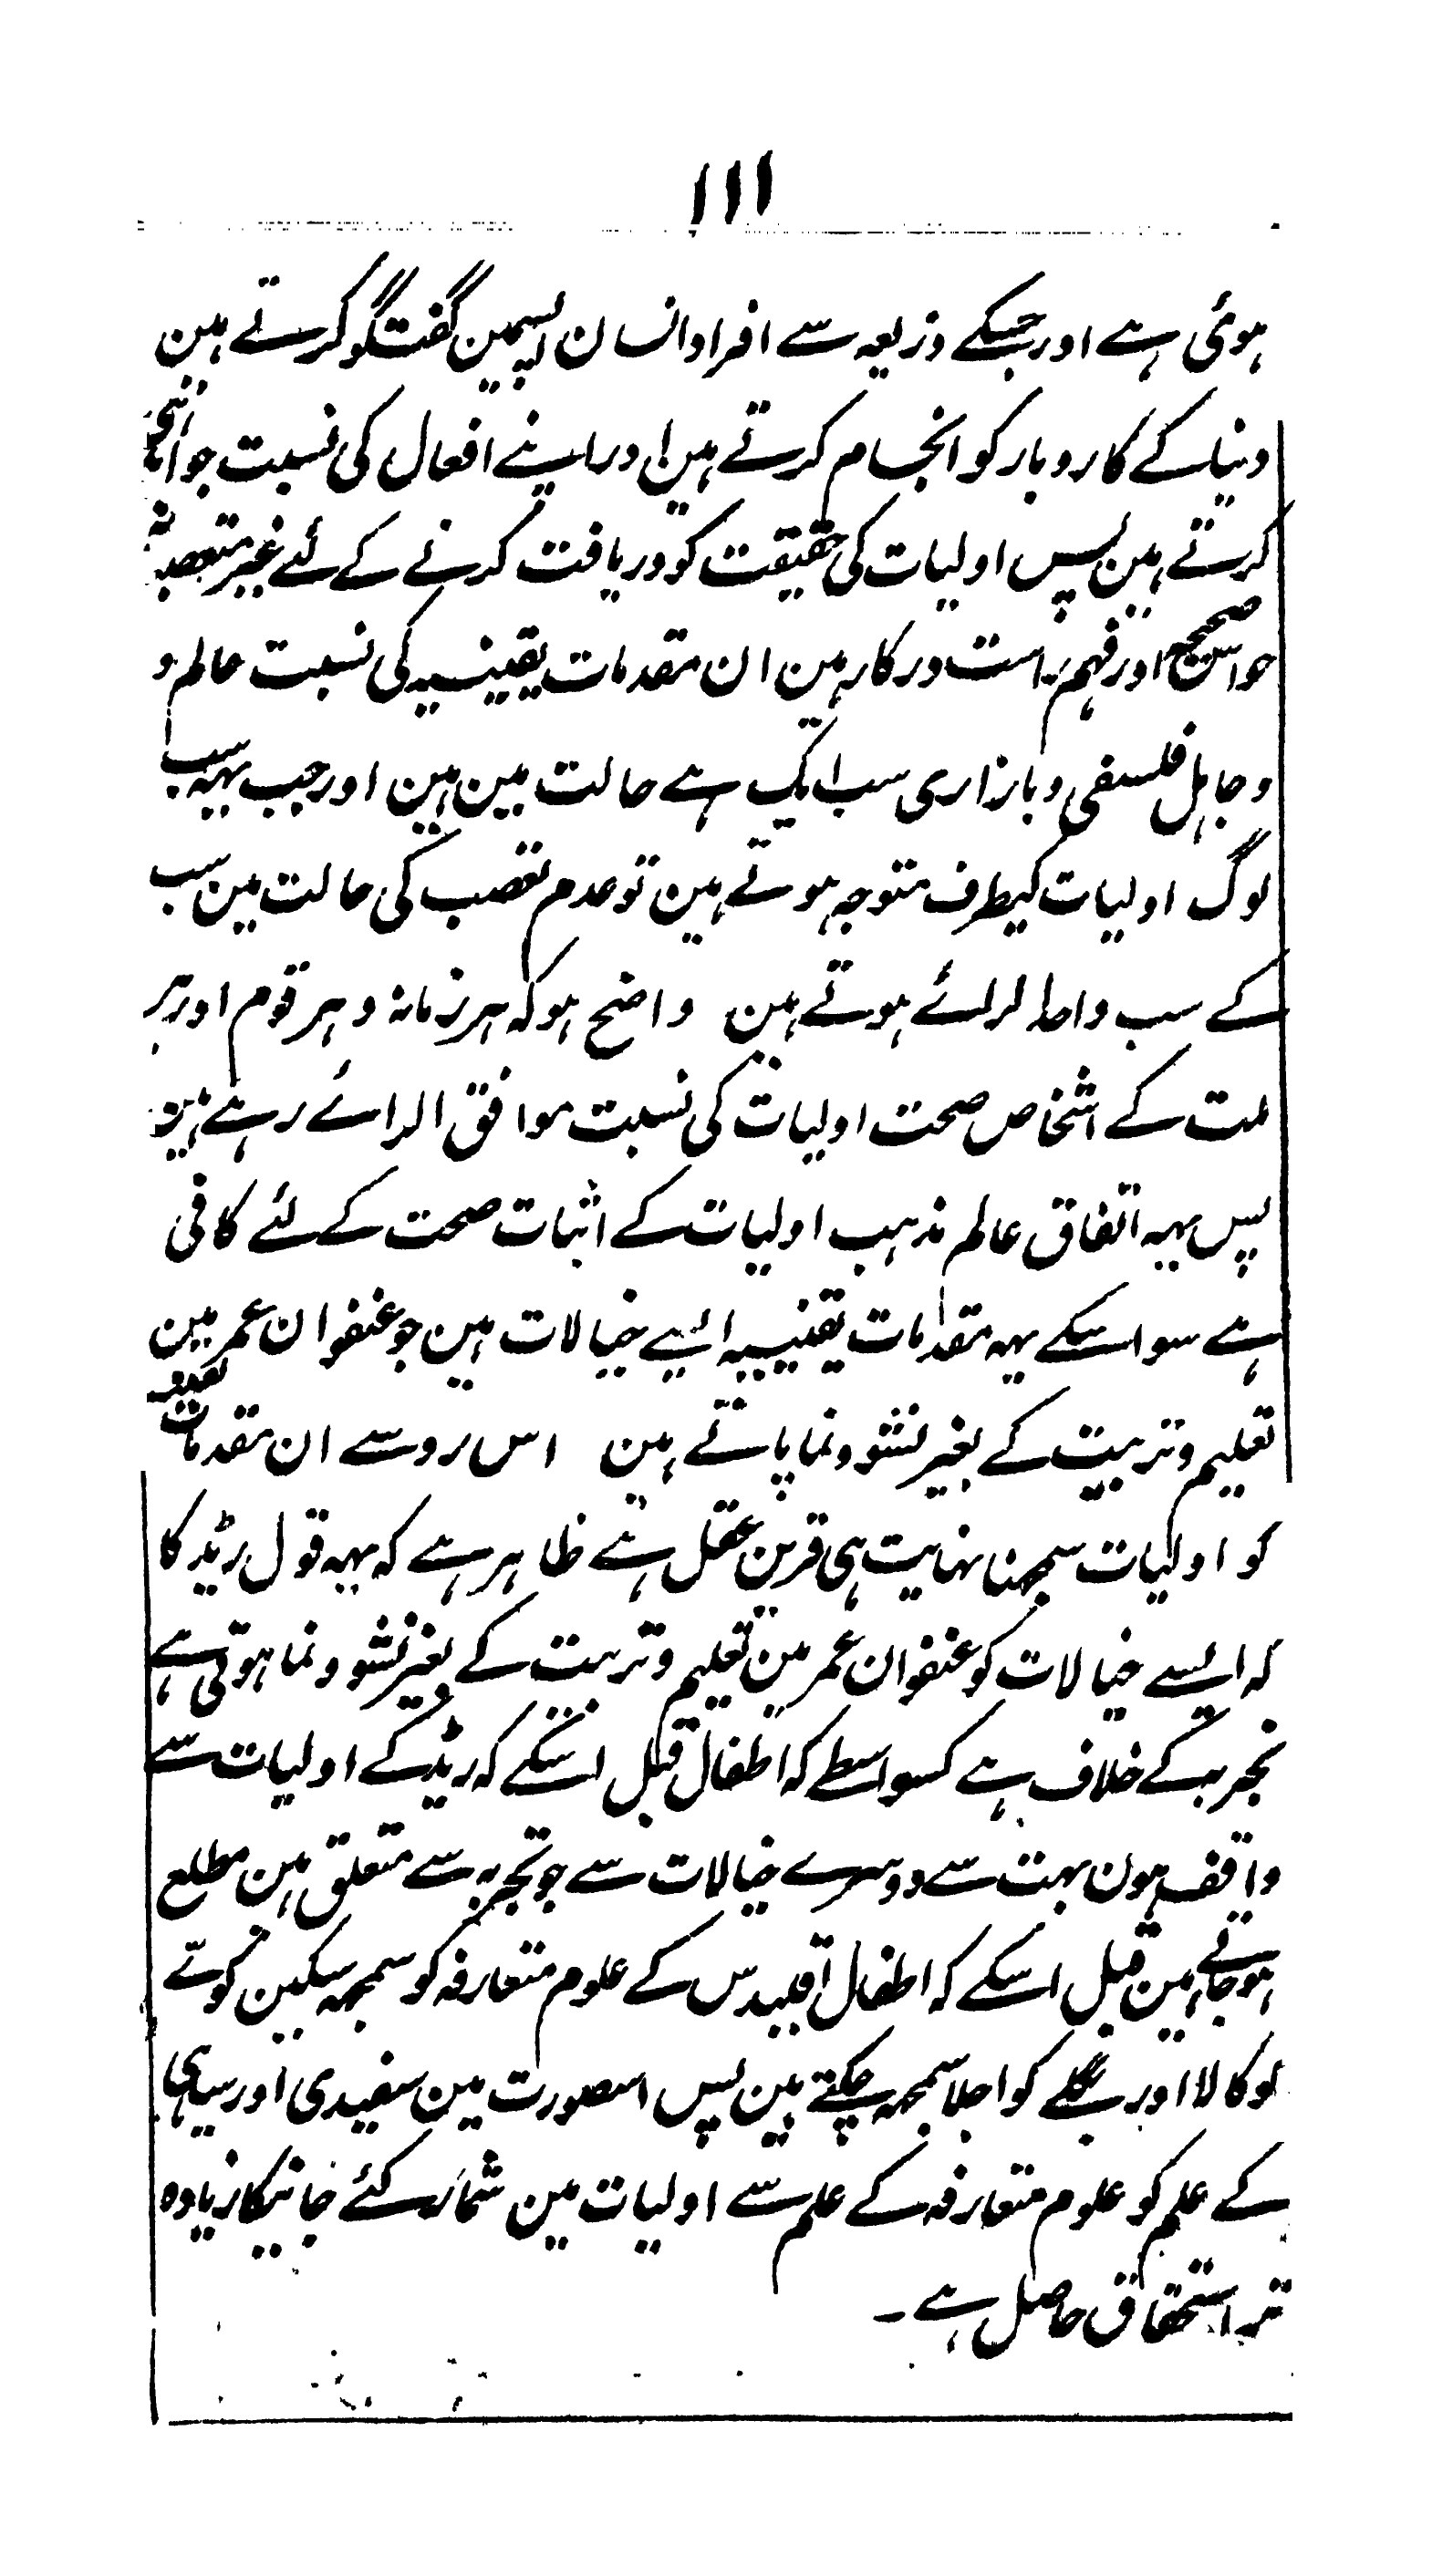 ۱۱۱
ہوئی ہے اور جسکے ذریعہ سے افراد انسان ایسمین گفتگو کرتے ہین
دنیا کے کاروبار کو انجام کرتے ہین اور اپنے افعال کی نسبت جو
کرتے ہین پس اولیات کی حقیقت کو دریافت کرنے کے لئے غیر متعصبہ
حواس صحیح اور فہم راست درکار ہین ان مقدمات یقینیہ کی نسبت عالم و
و جاہل فلسفی و بازاری سب ایک ہے حالت مین ہین اور جب یہہ سب
لوگ اولیات کیطرف متوجہ ہوتے ہین تو عدم تعصب کی حالت مین سب
کے سب واحد الرائے ہوتے ہین واضح ہو کہ ہر زمانہ و ہر قوم اور ہر
ملت کے اشخاص صحت اولیات کی نسبت موافق الرائے رہے ہین
پس یہہ اتفاق عالم مذہب اولیات کے اثبات صحت کے لئے کافی
ہے سوا اسکے یہہ مقدمات یقنییہ ایسے خیالات ہین جو عنفوان عمر مین
تعلیم و تربیت کے بغیر نشو و نما پاتے ہین اس رو سے ان مقدمات
کو اولیات سمجھنا نہایت ہی قرین عقل ہے ظاہر ہے کہ یہہ قول ریڈ کا
کہ ایسے خیالات کو عنفوان عمر مین تعلیم و تربیت کے بغیر نشو و نما ہوتی ہے
تجربہ کے خلاف ہے کسواسطے کہ اطفال قبل اسکے کہ ریڈ کے اولیات سے
واقف ہون بہت سے دوسرے خیالات سے جو تجربہ سے متعلق ہین مطلع
ہوجاتے ہین قبل اسکے کہ اطفال اقلیدس کے علوم متعارفہ کو سمجہہ سکین کوّے
کو کالا اور بگلے کو اجلا سمجہہ چکتے ہین پس اسصورت مین سفیدی اور سیاہی
کے علم کو علوم متعارفہ کے علم سے اولیات مین شمار کئے جانیکا زیادہ
تر استحقاق حاصل ہے ۔